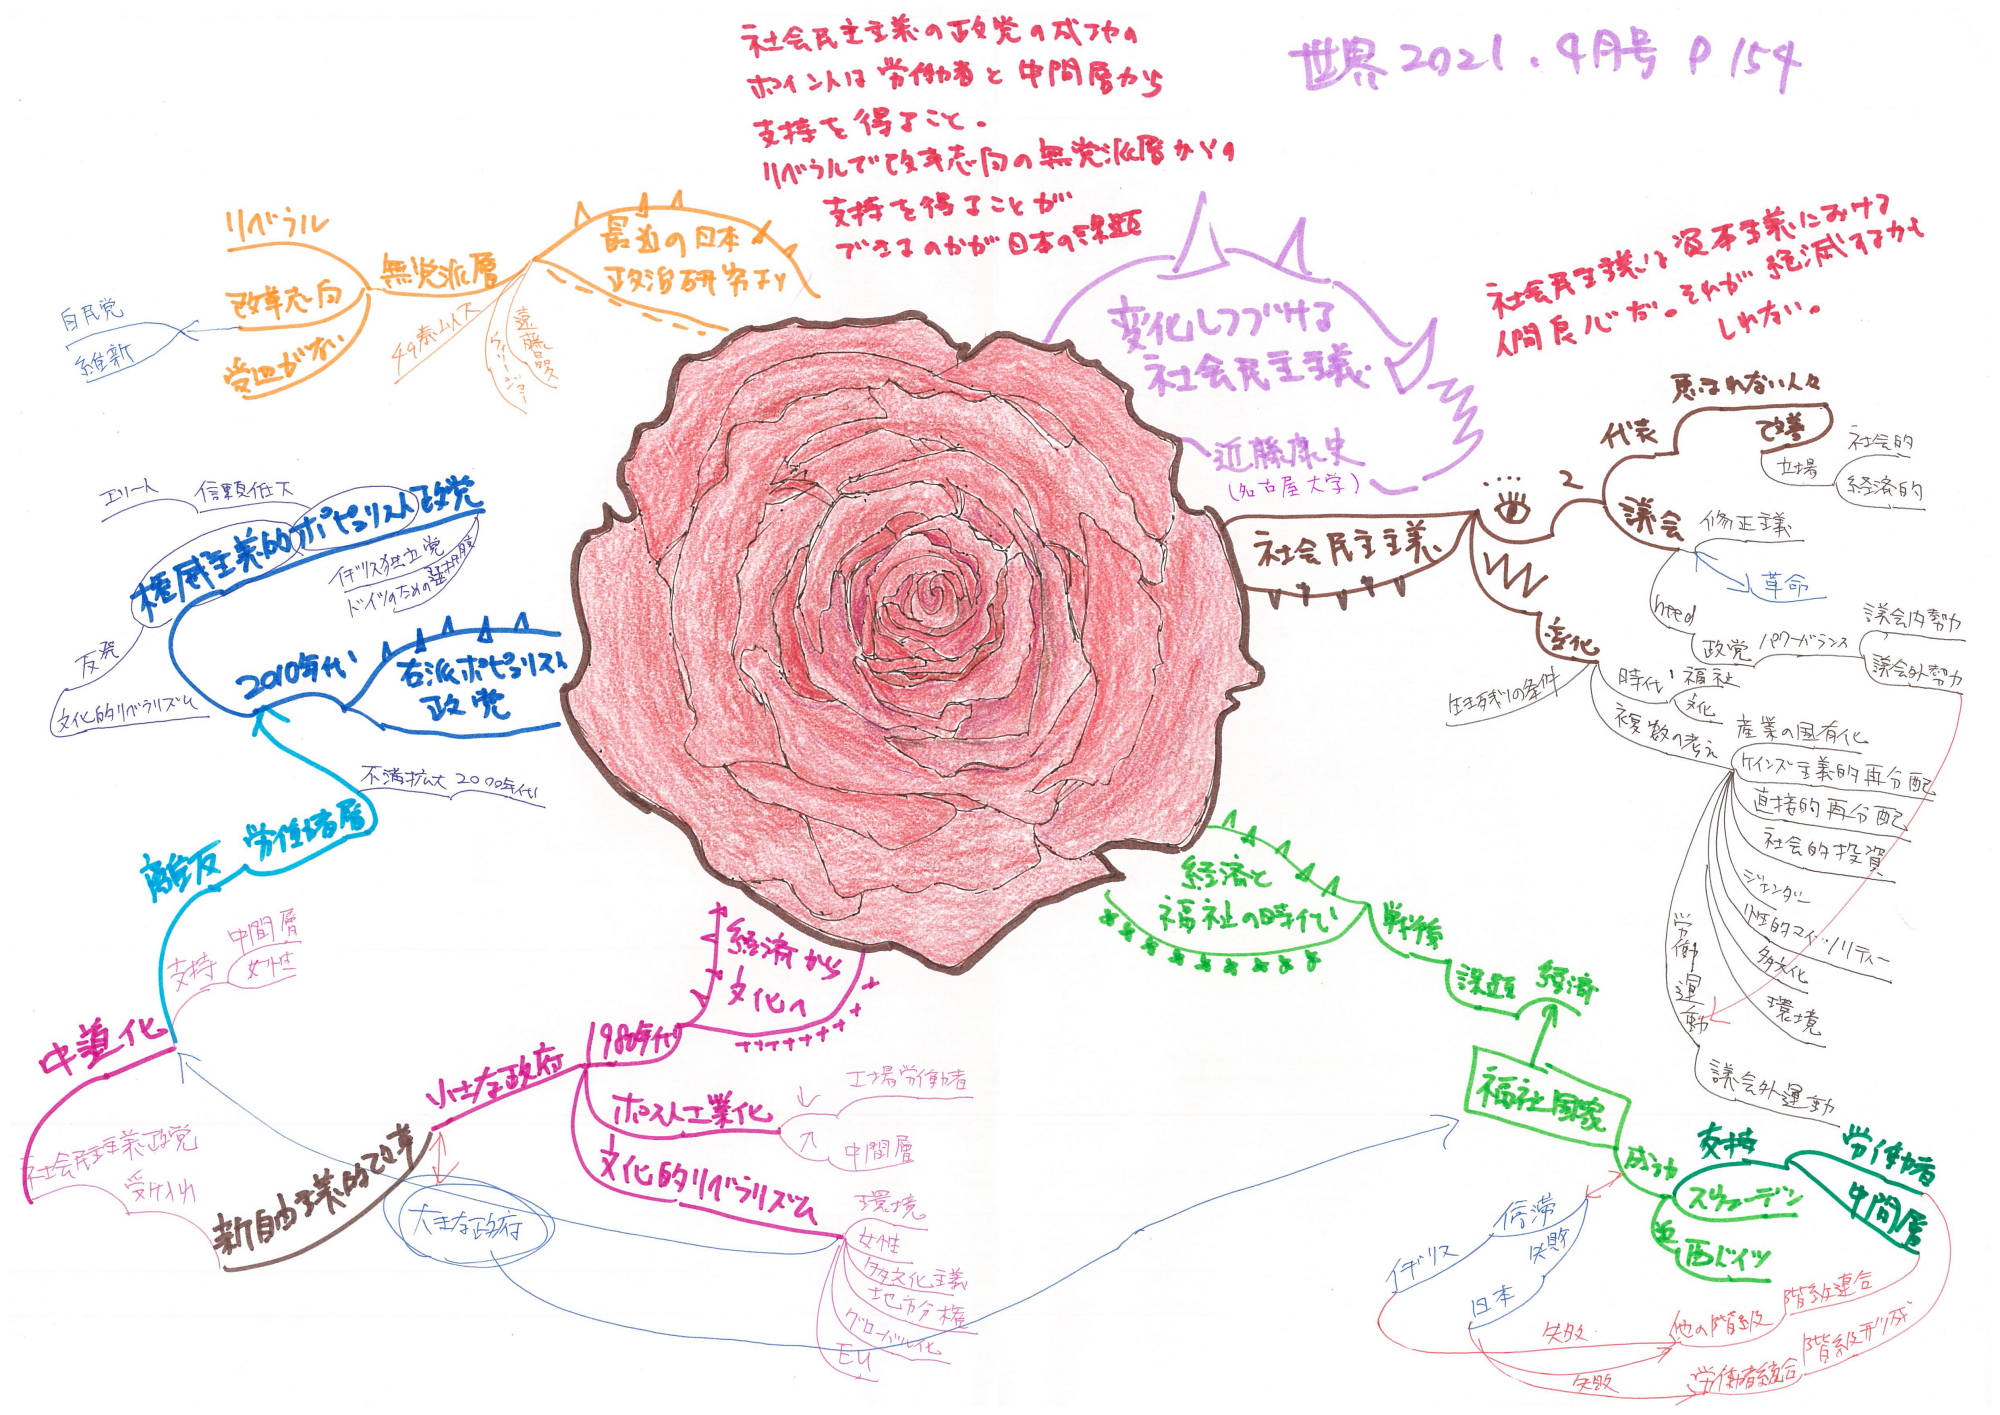 社会民主主義の政党の成功の
ポイントは労働者と中間層から
支持を得ること。
リベラルで改革志向の無党派層からの
支持を得ることが
できるのかが日本の課題
世界 2021.4月号 P154
変化しつづける
社会民主主義
近藤康史
(名古屋大学)
社会民主主義は資本主義における
人間良心だ。それが絶滅するかも
しれない。
社会民主主義
2
代表
恵まれない人々
改善
立場
社会的
経済的
議会
修正主義
革命
need
政党
パワーバランス
議会内勢力
議会外勢力
変化
生き残りの条件
時代
福祉
文化
複数の考え
産業の国有化
ケインズ主義的再分配
直接的再分配
社会的投資
ジェンダー
性的マイノリティー
多文化
環境
労働運動
議会外運動
経済と
福祉の時代
戦後
課題
経済
福祉国家
成功
支持
労働者
中間層
スウェーデン
西ドイツ
停滞
イギリス
失敗
日本
失敗
失敗
他の階級
階級連合
労働者統合
階級形成
経済から
文化へ
1980年代
小さな政府
ポスト工業化
工場労働者
中間層
文化的リベラリズム
環境
女性
多文化主義
地方分権
グローバル化
EU
大きな政府
新自由主義的改革
社会民主主義政党
受け入れ
中道化
支持
中間層
女性
離反
労働者層
不満拡大
2000年代
右派ポピュリスト
政党
2010年代
権威主義的ポピュリスト政党
信頼低下
エリート
イギリス独立党
ドイツのための選択肢
反発
文化的リベラリズム
最近の日本
政治研究より
無党派層
リベラル
改革志向
受皿がない
自民党
維新
遠藤晶久
ウィリー・ジョウ